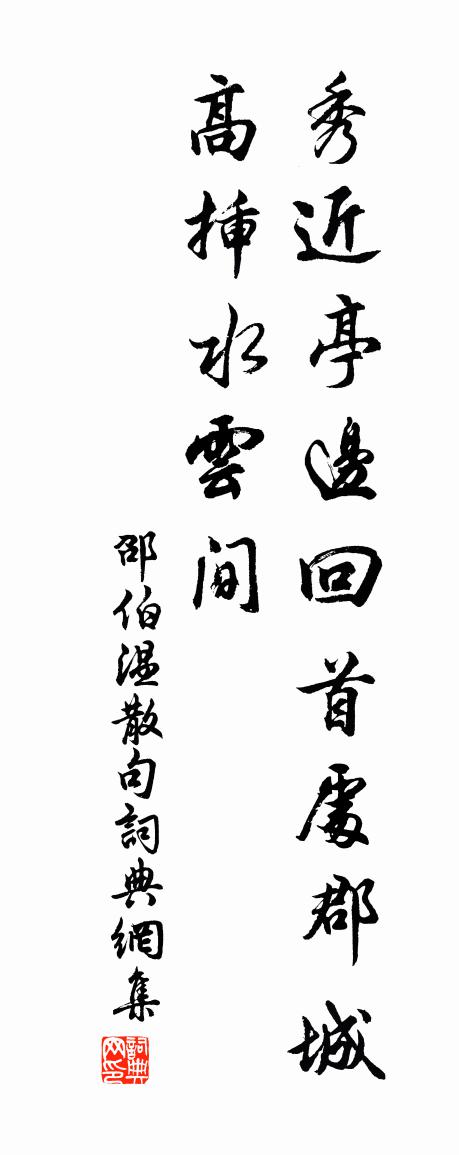 秀近亭邊回首處郡城
高揷水雲間
邵伯温散句詞典網集
詞典网印